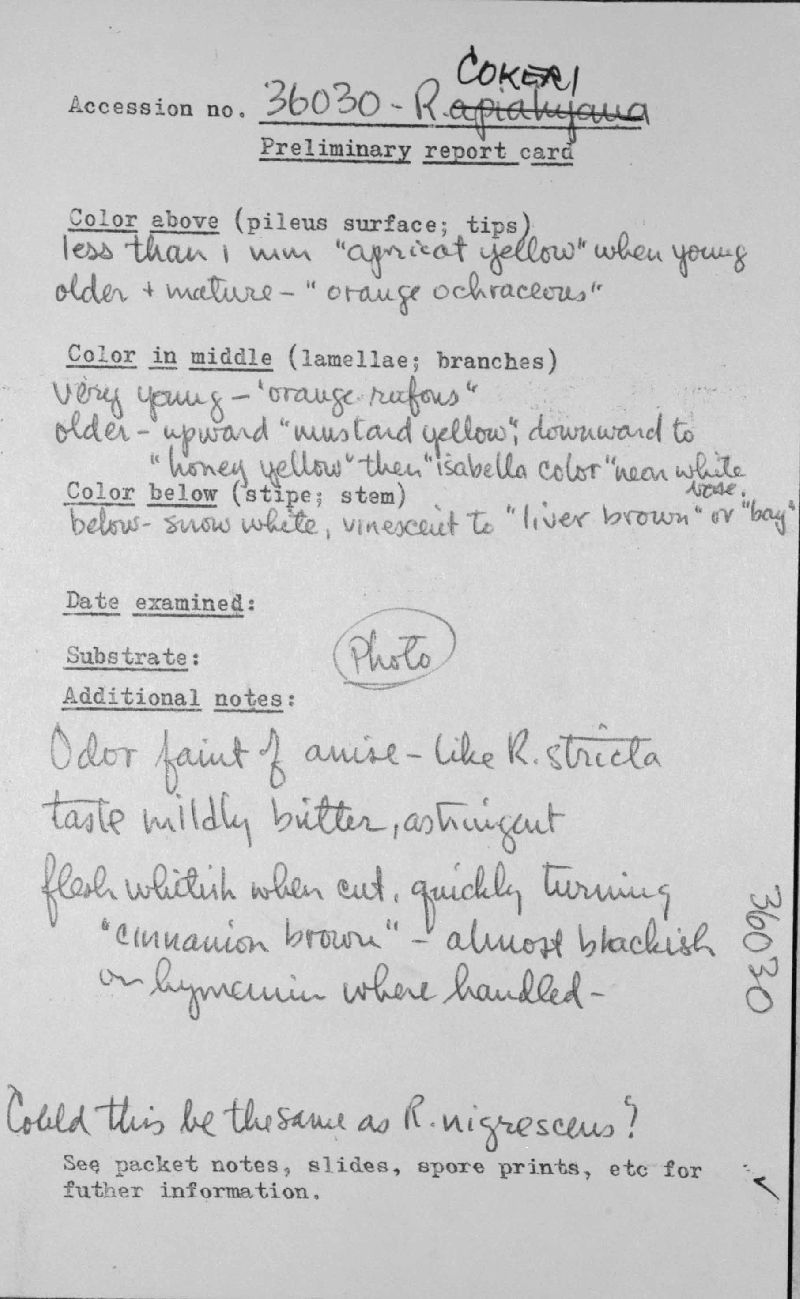 COKERI
Accession no. 36030 - R. apiahyana
Preliminary report card
Color above (pileus surface; tips)
less than 1 mm "apricot yellow" when young
older + mature - "orange ochraceous"
Color in middle (lamellae; branches)
Very young - "orange rufous"
older - upward "mustard yellow"; downward to
"honey yellow" then "isabella color" near white
base.
Color below (stipe; stem)
below - snow white, vinescent to "liver brown" or "bay"
Date examined:
Substrate:
Photo
Additional notes:
Odor faint of anise - like R. stricta
taste mildly bitter, astringent
flesh whitish when cut, quickly turning
"cinnamon brown" - almost blackish
on hymenium where handled -
36030
Could this be the same as R. nigrescens?
See packet notes, slides, spore prints, etc for
futher information.